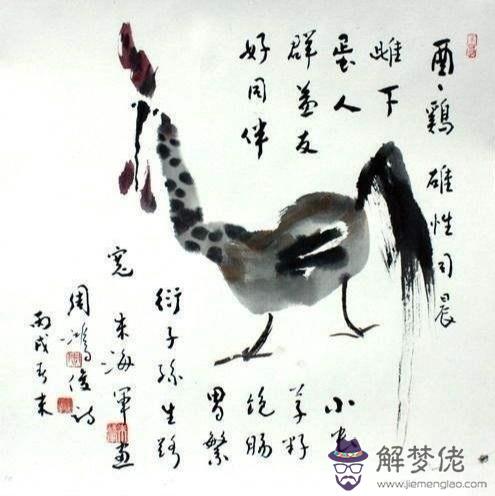 酉、鷄雄性司晨
雌下
蛋人
群益友
好同伴
小虫
草籽
飽腸
胃繁
衍子孫生路
寬
朱海軍畫
周鴻俊詩
丙戌春末
解梦佬
www.jiemenglao.com